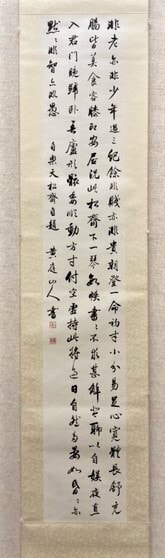 非老亦非少年過三紀餘非賤亦非貴朝登一命初才小分易足心寬體長舒充
腸皆美食容膝即安居況此松齋下一琴數帙書〻不求甚解琴聊以自娛夜直
入君門晚歸臥吾廬形骸委順動方寸付空虛持此將過日自然多晏如昏〻亦
默〻非智亦非愚 白樂天松齋自題 黃庭山人書